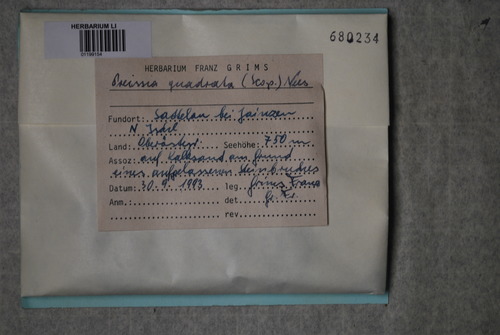 HERBARIUM LI
01190104
680234
HERBARIUM FRANZ GRIMS
Preissia quadrata (Scop.) Nees
Fundort: Sattelau bei Jainzen
N Ischl
Land: Oberösterr. Seehöhe: 750 m
Assoz: auf Kalksand am Grund
eines aufgelassenen Steinbruches
Datum: 30.9.1993 leg. Grims Franz
Anm.: det Gr. Fr.
rev.